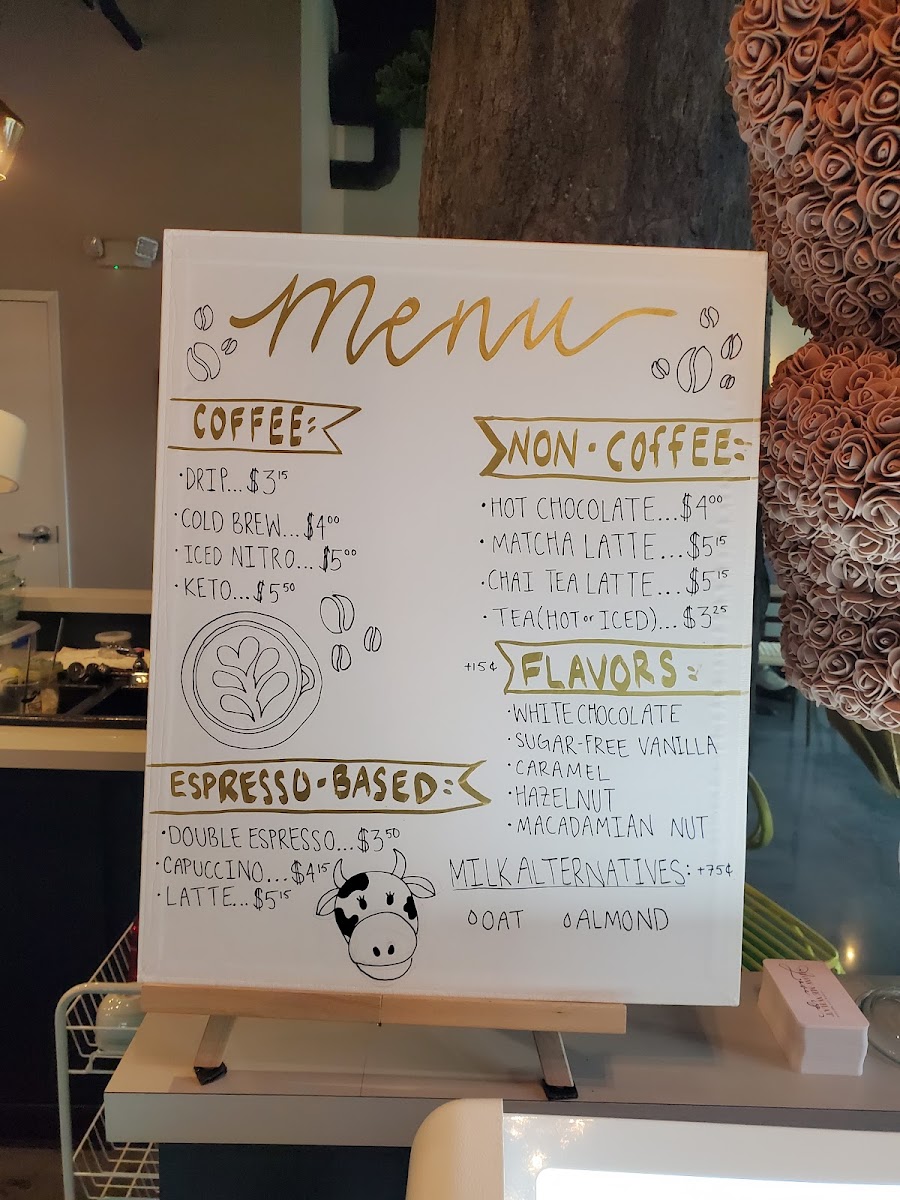 Menu
COFFEE:
·DRIP...$3¹⁵
·COLD BREW...$4⁰⁰
·ICED NITRO...$5⁰⁰
·KETO...$5⁵⁰
ESPRESSO-BASED:
·DOUBLE ESPRESSO...$3⁵⁰
·CAPUCCINO...$4¹⁵
·LATTE...$5¹⁵
NON-COFFEE:
·HOT CHOCOLATE...$4⁰⁰
·MATCHA LATTE...$5¹⁵
·CHAI TEA LATTE...$5¹⁵
·TEA(HOT or ICED)...$3²⁵
+15¢ FLAVORS:
·WHITE CHOCOLATE
·SUGAR-FREE VANILLA
·CARAMEL
·HAZELNUT
·MACADAMIAN NUT
MILK ALTERNATIVES: +75¢
OAT ALMOND